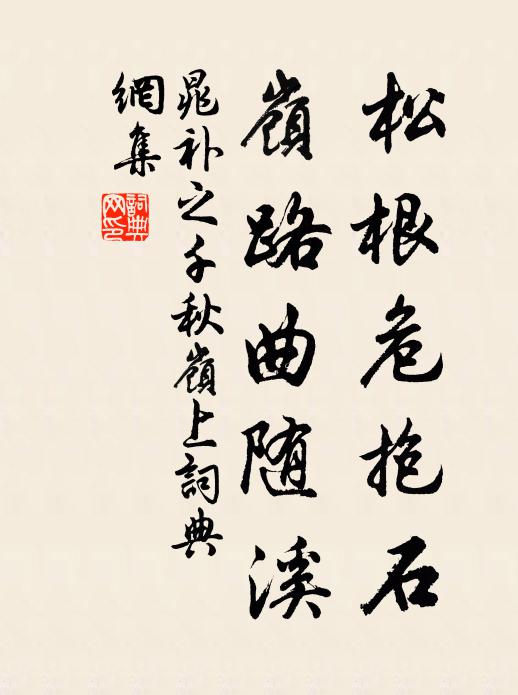 松根危抱石
嶺路曲随溪
晁补之千秋嶺上詞典
網集
詞典
网印